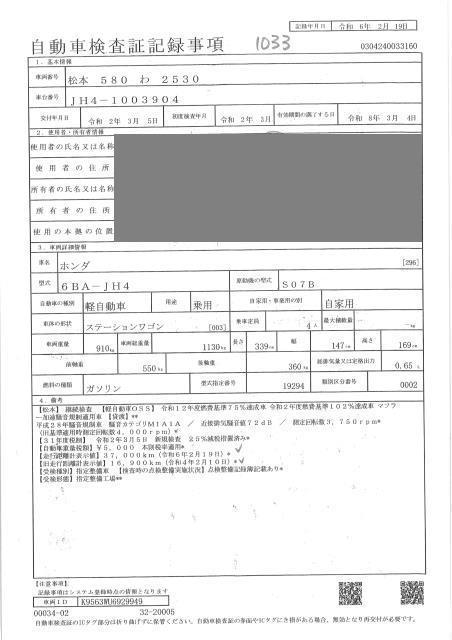 記録年月日 令和 6年 2月 19日
自動車検査証記録事項 1033 0304240033160
1.基本情報
車両番号 松本 580 わ 2530
車台番号 JH4-1003904
交付年月日 令和 2年 3月 5日 初度検査年月 令和 2年 3月 有効期間の満了する日 令和 8年 3月 4日
2.使用者・所有者情報
使用者の氏名又は名称
使用者の住所
所有者の氏名又は名称
所有者の住所
使用の本拠の位置
3.車両詳細情報
車名 ホンダ [296]
型式 6BA-JH4 原動機の型式 S07B
自動車の種別 軽自動車 用途 乗用 自家用・事業用の別 自家用
車体の形状 ステーションワゴン [003] 乗車定員 4人 最大積載量 -kg
車両重量 910kg 車両総重量 1130kg 長さ 339cm 幅 147cm 高さ 169cm
前軸重 550kg 後軸重 360kg 総排気量又は定格出力 0.65L
燃料の種類 ガソリン 型式指定番号 19294 類別区分番号 0002
4.備考
【松本】 継続検査 【軽自動車OSS】 令和12年度燃費基準75%達成車 令和2年度燃費基準102%達成車 マフラ
ー加速騒音規制適用車 【貸渡】**
平成28年騒音規制車 騒音カテゴリM1A1A / 近接排気騒音値72dB / 測定回転数3,750rpm*
(旧基準適用時測定回転数4,000rpm)*
【31年度税制】 令和2年3月5日 新規検査 25%減税措置済み*
【自動車重量税額】¥5,000 本則税率適用*
【走行距離計表示値】37,000km(令和6年2月19日)*
【旧走行距離計表示値】16,900km(令和4年2月10日)*
【受検種別】指定整備車 【検査時の点検整備実施状況】点検整備記録簿記載あり*
【受検形態】指定整備工場**
【注意事項】
記載事項はシステム登録時点の情報となります
車両ID K9563MU6929949
00034-02 32-20005
自動車検査証のICタグ部分は折り曲げずに保管ください。自動車検査証の券面やICタグにき損がある場合、無効となり再交付が必要です。